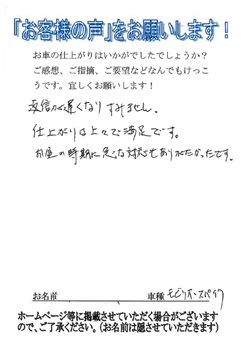 「お客様の声」をお願いします！
お車の仕上がりはいかがでしたでしょうか？
ご感想、ご指摘、ご要望などなんでもけっこ
うです。宜しくお願いします！
返信が遅くなりすみません。
仕上がりは上々で満足です。
お盆の時期に急な対応もありがたかったです。
お名前 車種 モビリオスパイク
ホームページ等に掲載させていただく場合がございます
ので、ご了承ください。（お名前は隠させていただきます）